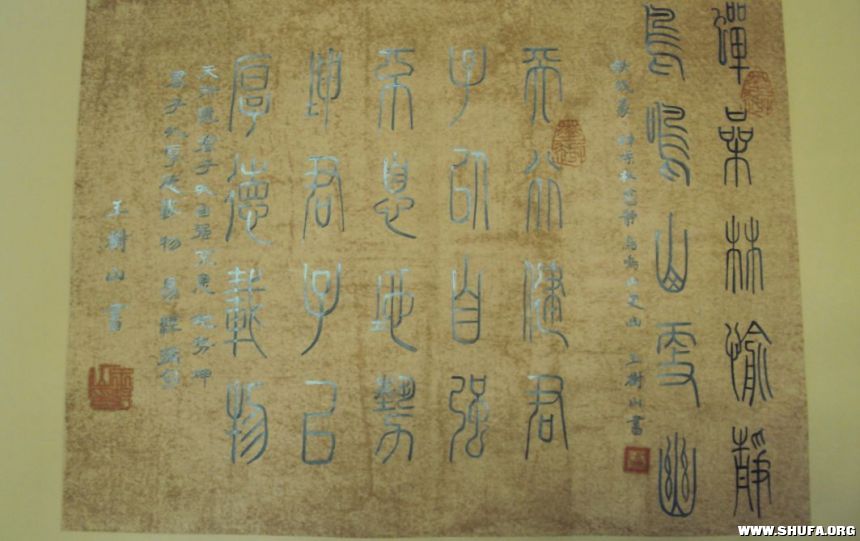 蟬噪林愉靜
鳥鳴山更幽
蟬噪林愉静鳥鳴山更幽 王樹山書
天行健君
子以自强
不息地勢
坤君子以
厚德載物
天行健君子以自强不息 地势坤
君子以厚德載物 易經
王樹山書
WWW.SHUFA.ORG